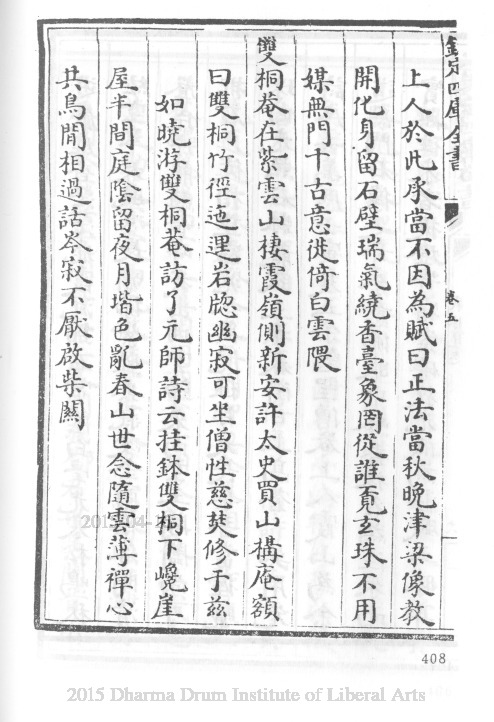 欽定四庫全書
卷五
上人於此承當不因為賦曰正法當秋晚津梁像教
開化身留石壁瑞氣繞香臺象罔從誰覓玄珠不用
媒無門千古意徙倚白雲隈
雙桐菴在紫雲山棲霞嶺側新安許太史買山構庵額
曰雙桐竹徑迤𨓦岩牕幽寂可坐僧性慈焚修于兹
如曉游雙桐菴訪了元師詩云挂鉢雙桐下巉崖
屋半間庭陰留夜月堦色亂春山世念隨雲薄禪心
共鳥閒相過話岑寂不厭啟柴關
408
2015 Dharma Drum Institute of Liberal Arts